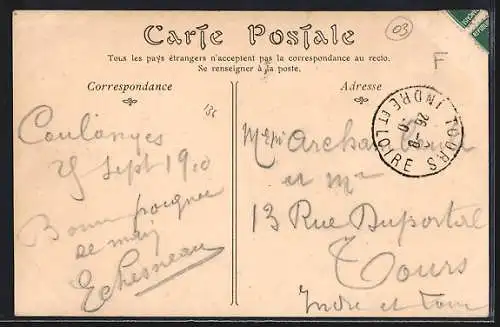 Carte Postale
03
Tous les pays étrangers n'acceptent pas la correspondance au recto.
Ne renseigner à la poste.
F
Correspondance
Adresse
136
TOURS
INDRE ET LOIRE
26-9
Coulanges
Sept 1910
Bonne poignée
de main
Echesneau
Archambault
et Mme
13 Rue Duportal
Tours
Indre et Loire